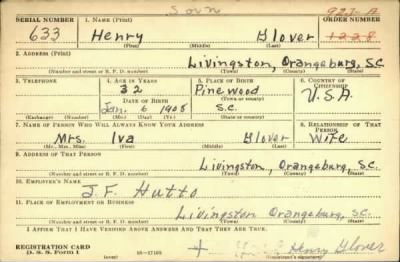 Sovn 927-A
SERIAL NUMBER 1. NAME (Print) ORDER NUMBER
633 Henry Glover 1228
(First) (Middle) (Last)
2. ADDRESS (Print)
Livingston, Orangeburg, S.C.
(Number and street or R. F. D. number) (Town) (County) (State)
3. TELEPHONE 4. AGE IN YEARS 5. PLACE OF BIRTH 6. COUNTRY OF CITIZENSHIP
32 Pinewood
DATE OF BIRTH (Town or county) U.S.A.
Jan. 6 1908 S.C.
(Exchange) (Number) (Mo.) (Day) (Yr.) (State or country)
7. NAME OF PERSON WHO WILL ALWAYS KNOW YOUR ADDRESS 8. RELATIONSHIP OF THAT PERSON
Mrs. Iva Glover Wife
(Mr., Mrs., Miss) (First) (Middle) (Last)
9. ADDRESS OF THAT PERSON
Livingston, Orangeburg, S.C.
(Number and street or R. F. D. number) (Town) (County) (State)
10. EMPLOYER'S NAME
J.F. Hutto
11. PLACE OF EMPLOYMENT OR BUSINESS
Livingston Orangeburg, S.C.
(Number and street or R. F. D. number) (Town) (County) (State)
I AFFIRM THAT I HAVE VERIFIED ABOVE ANSWERS AND THAT THEY ARE TRUE.
REGISTRATION CARD
D. S. S. Form 1 (over) 16-17105 Henry Glover